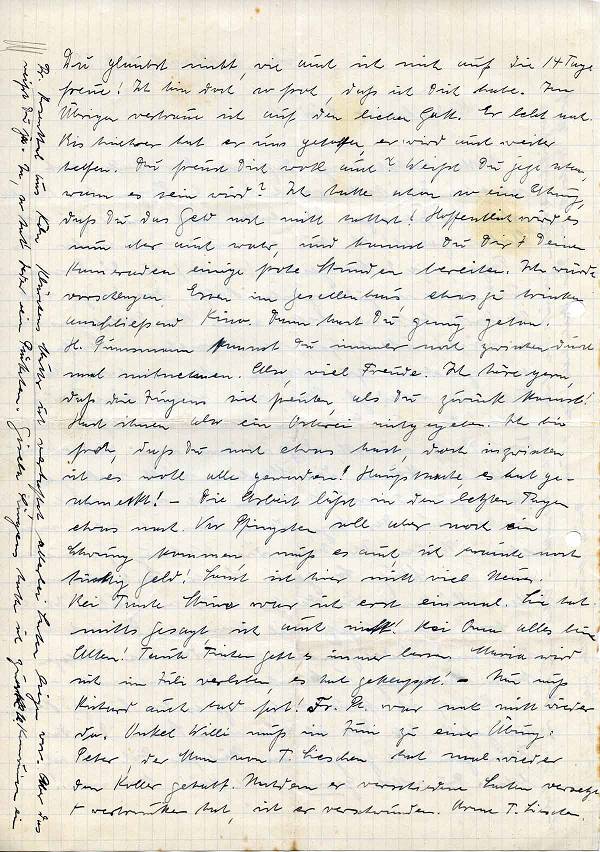 Du glaubst nicht, wie auch ich mich auf die 14 Tage
freue! Ich bin doch so froh, daß ich Dich habe. Im
Übrigen vertraue ich auf den lieben Gott. Er lebt noch.
Bis hierher hat er uns geholfen er wird auch weiter
helfen. Du freust Dich wohl auch? Weißt Du jetzt schon,
wann es sein wird? Ich hatte schon so eine Ahnung,
daß Du das Geld noch nicht hattest! Hoffentlich wird es
nun aber auch wahr, und kannst Du Dir + Deinen
Kameraden einige frohe Stunden bereiten. Ich würde
vorschlagen, Essen im Gesellenhaus, etwas zu trinken
anschließend Kino. Dann hast Du genug getan.
H. kannst Du immer noch zwischendurch
mal mitnehmen. Also, viel Freude. Ich höre gern,
daß die Jungens sich freuten, als Du zurück kamst!
Hast ihnen also ein Osterei mitgegeben. Ich bin
froh, daß Du noch etwas hast, doch inzwischen
ist es wohl alle geworden! Hauptsache es hat ge-
schmeckt! – Die Arbeit läßt in den letzten Tagen
etwas nach. Vor Pfingsten soll aber noch ein
Schwung kommen, muß es auch, ich brauche noch
tüchtig Geld! Sonst ist hier nicht viel Neues.
Bei Tante war ich erst einmal. Sie hat
nichts gesagt, ich auch nicht! Bei Oma alles beim
Alten! Tante geht es immer besser. Maria wird
sich im Juli verloben, es hat geklappt! – Nun muß
Richard auch bald fort! Fr. Pl. war noch nicht wieder
da. Onkel Willi muß im Juni zu einer Übung.
Peter, der Mann von T. Lieschen hat mal wieder
den Koller gehabt. Nachdem er verschiedene Sachen versetzt
+ vertrunken hat, ist er verschwunden. Arme T. Lieschen.
aus Köln Mutter ist allerlei vor. Aber das
weißt Du ja. In, so hat ein. ich ein